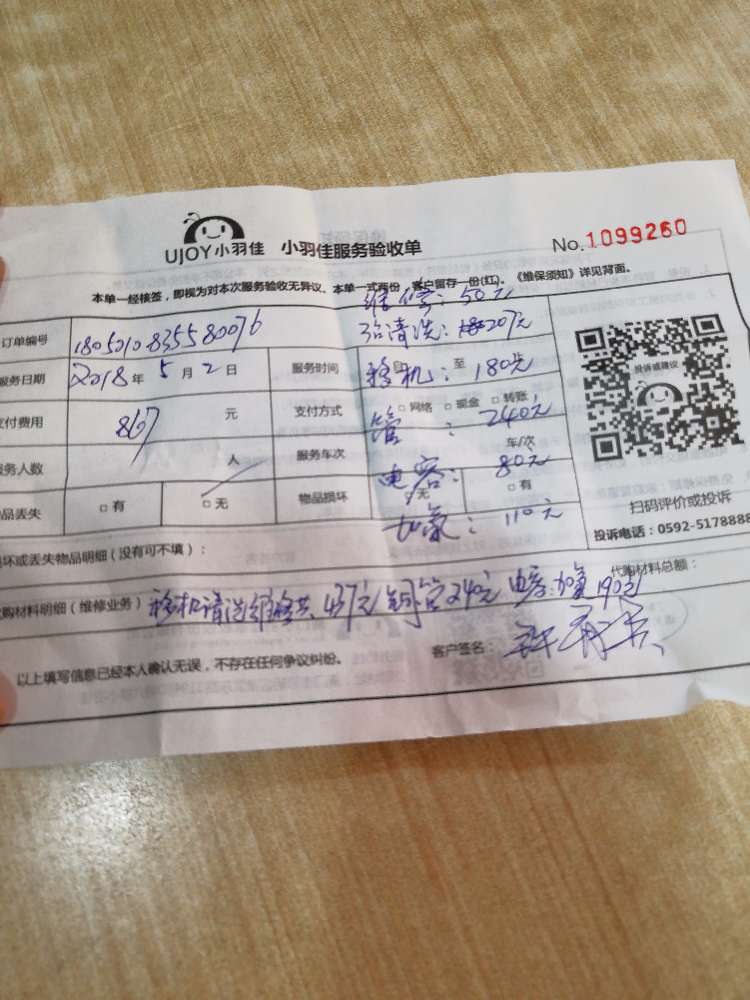 UJOY小羽佳 小羽佳服务验收单 No.1099260
本单一经核签，即视为对本次服务验收无异议。本单一式两份，客户留存一份(红)。《维保须知》详见背面。
维修：50元
订单编号 1805010835580076 清洗：207元
服务日期 2018年5月2日 服务时间 至 移机：180元
支付费用 867 元 支付方式 □网络 □现金 □转账
管：240元
服务人数 人 服务车次 车/次
电容：80元
品丢失 □有 □无 物品损坏 □无 □有
加氟：110元
投诉或建议
扫码评价或投诉
投诉电话：0592-5178888
损坏或丢失物品明细（没有可不填）：
代购材料总额：
购材料明细（维修业务） 移机清洗维修共437元 铜管240元 电容加氟190元
以上填写信息已经本人确认无误，不存在任何争议纠纷。 客户签名：